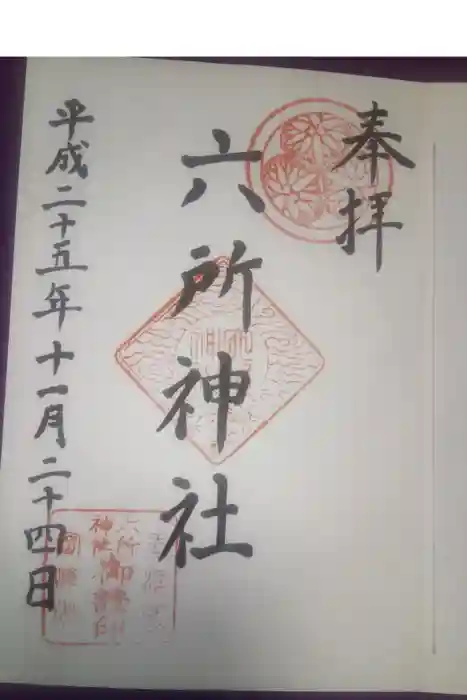 奉拝
六所神社
平成二十五年十一月二十四日
六所
神社